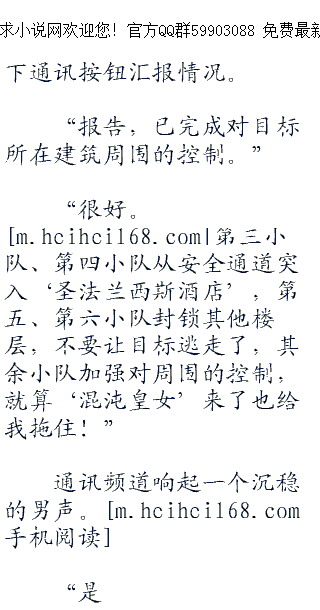 求小说网欢迎您！官方QQ群59903088 免费最新
下通讯按钮汇报情况。
“报告，已完成对目标
所在建筑周围的控制。”
“很好。
[m.hcihcil68.com|第三小
队、第四小队从安全通道突
入‘圣法兰西斯酒店’，第
五、第六小队封锁其他楼
层，不要让目标逃走了，其
余小队加强对周围的控制，
就算‘混沌皇女’来了也给
我拖住！”
通讯频道响起一个沉稳
的男声。[m.hcihcil68.com
手机阅读]
“是